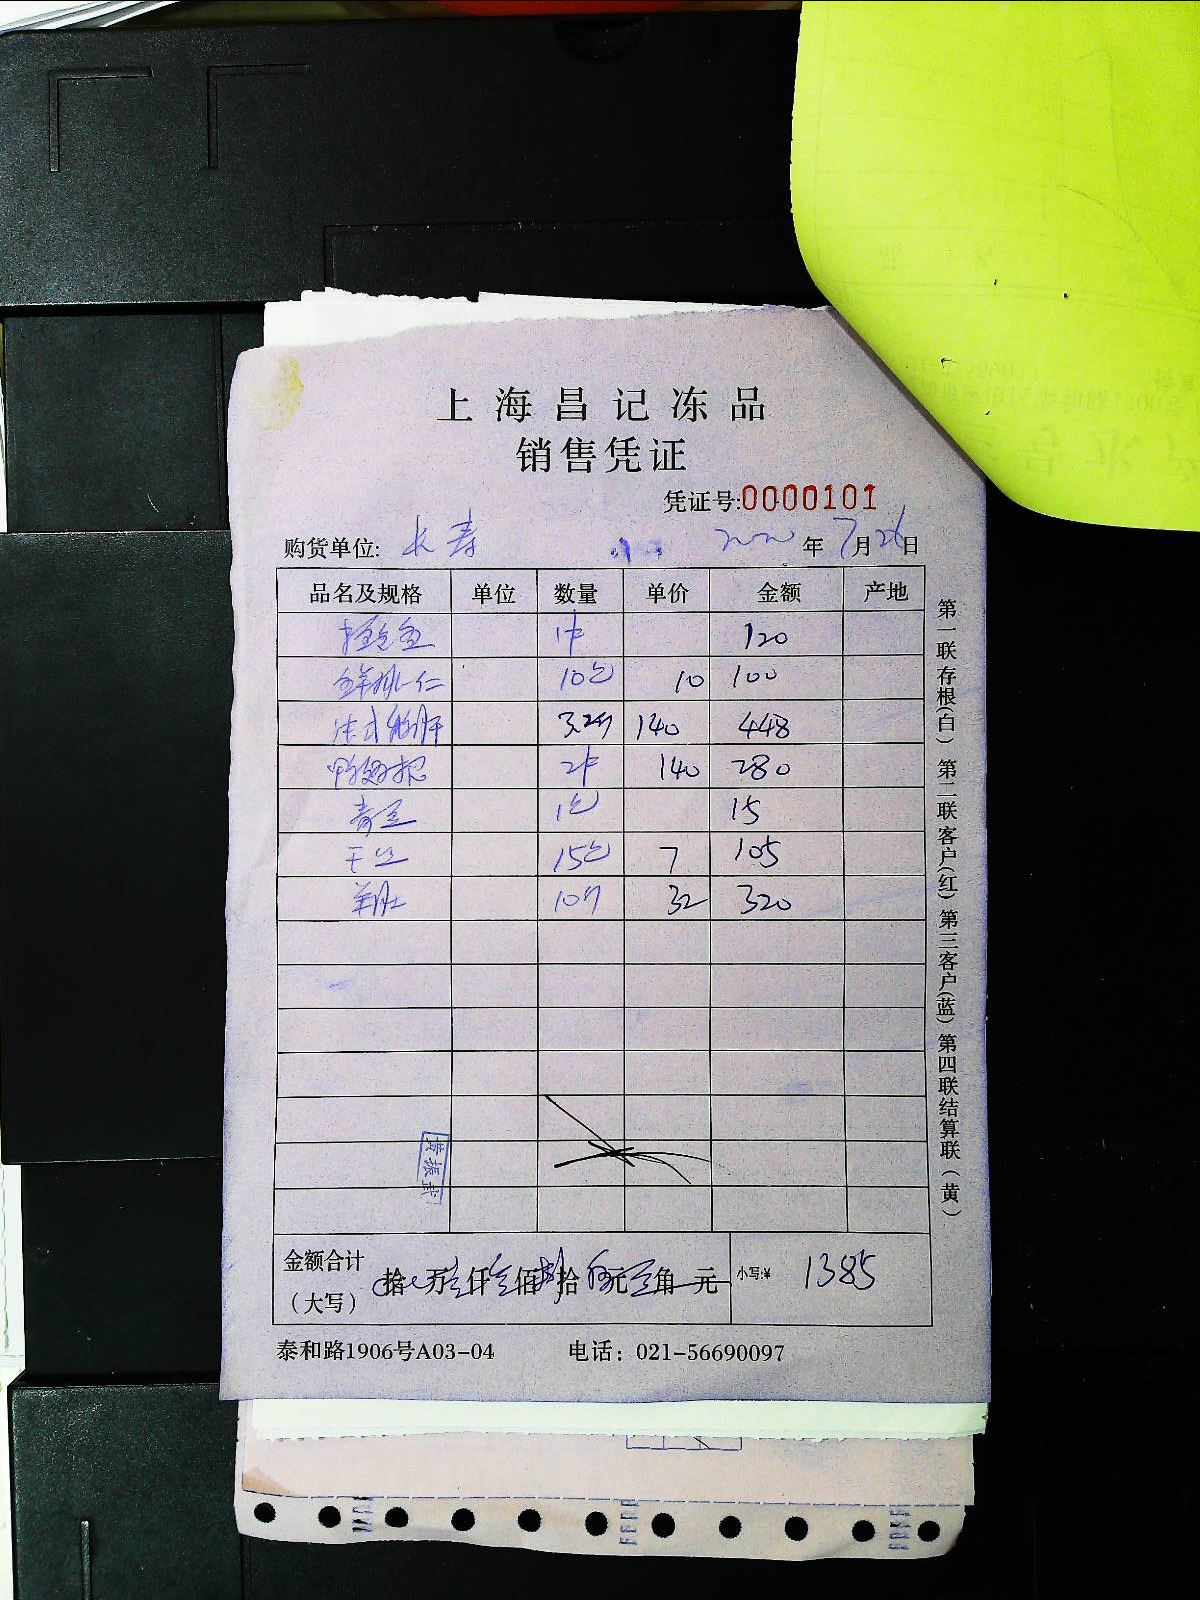 上海昌记冻品
销售凭证
凭证号:0000101
购货单位: 长寿 2020年7月26日
品名及规格 单位 数量 单价 金额 产地
1件 120
10包 10 100
法式鹅肝 3.2斤 140 448
2件 140 280
青豆 1包 15
干丝 15包 7 105
羊肚 10斤 32 320
黄振武
金额合计
(大写) 拾 万壹仟叁佰捌拾伍元 角 元 小写:¥ 1385
泰和路1906号A03-04 电话: 021-56690097
第一联存根(白) 第二联客户(红) 第三客户(蓝) 第四联结算联(黄)